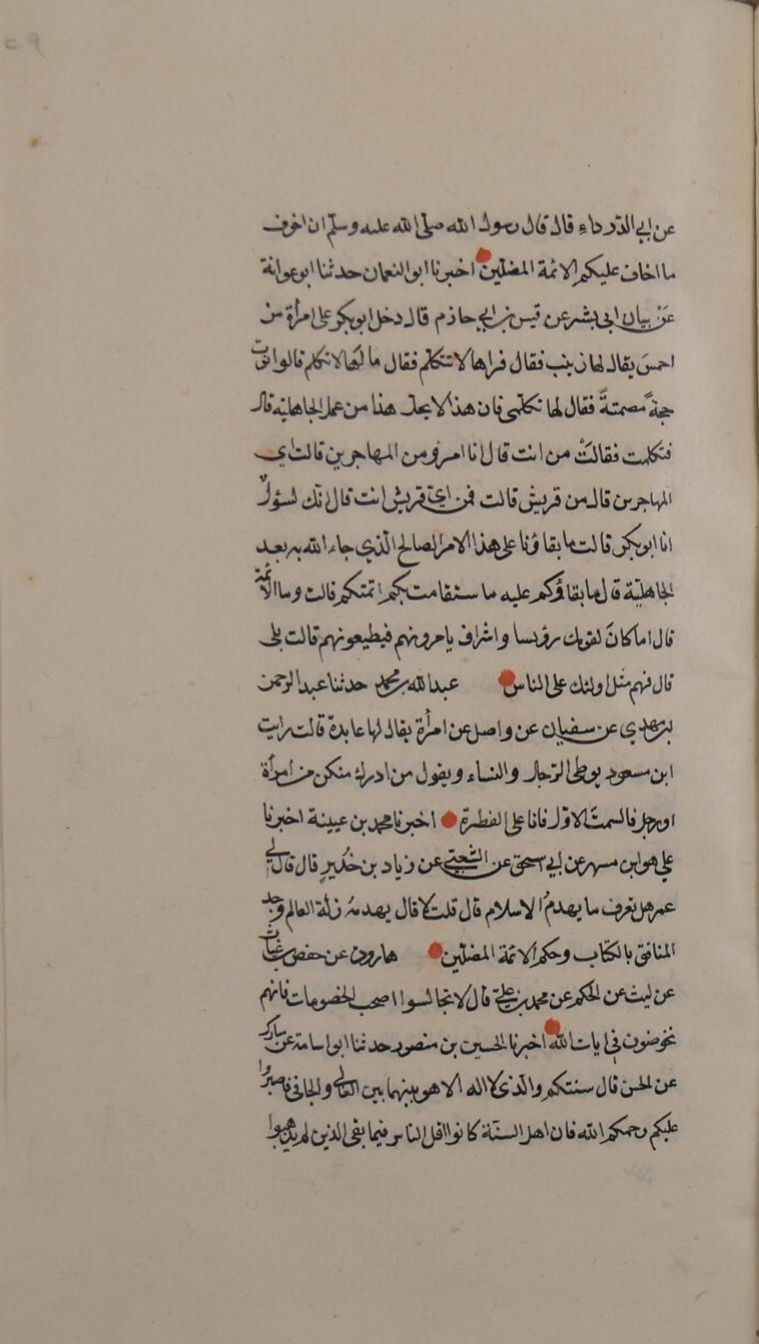 عن ابي الدرداء قال قال رسول الله صلى الله عليه وسلم ان اخوف
ما اخاف عليكم الائمة المضلين اخبرنا ابو النعمان حدثنا ابو عوانة
عَنْ بيان ابي بشر عن قيس بن ابي حازم قال دخل ابو بكر على امرأة من
احمسَ يقال لها زينب فقال فراها لا تتكلم فقال ما لَها لا تكلم قالوا نوت
حجةً مصمتةً فقال لها تكلمي فان هذا لا يحل هذا من عمل الجاهلية قال
فتكلمت فقالتْ من انت قال انا امرؤ من المهاجرين قالت اي
المهاجرين قال من قريش قالت فمن ايّ قريش انت قال انّك لسؤلٌ
انا ابو بكر قالت ما بقاؤنا على هذا الامر الصالح الذي جاء الله به بعد
الجاهليّة قال ما بقاؤكم عليه ما ستقامت بكم ائمتكم قالت وما الائمة
قال اما كانَ لقومك رؤيسا واشراف يامرونهم فيطيعونهم قالت بلى
قال فهم مثل اولئك على الناس عبد الله بن محمد حدثنا عبد الرحمن
بن مهدي عن سفيان عن واصل عن امرأة يقال لها عابدة قالت رايت
ابن مسعود يوطي الرّجال والنساء ويقول من ادرك منكن من امرأة
اورجل فالسمتَ الاوّل فانا على الفطرة اخبرنا محمد بن عيينة اخبرنا
علي هو ابن مسهر عن ابي اسحق عن الشعبي عن زياد بن حُدَيرٍ قال قال لي
عمر هل تعرف ما يهدمُ الاسلام قال قلت لا قال يهدمهُ زلّة العالم وجدال
المنافق بالكتاب وحكم الائمة المضلّين هارون عن حفص بن غياث
عن ليث عن الحكم عن محمد بن علي قال لا تجالسوا اصحب الخصومات فانهم
يخوضون في ايات الله اخبرنا الحسين بن منصور حدثنا ابو اسامة عن مبارك
عن الحسن قال سنتكم والذي لا اله الا هو بينهما بين الغالي والجافي فاصبروا
عليكم رحمكم الله فان اهل السنّة كانوا اقل الناس فيما بقي الذين لم يذهبوا